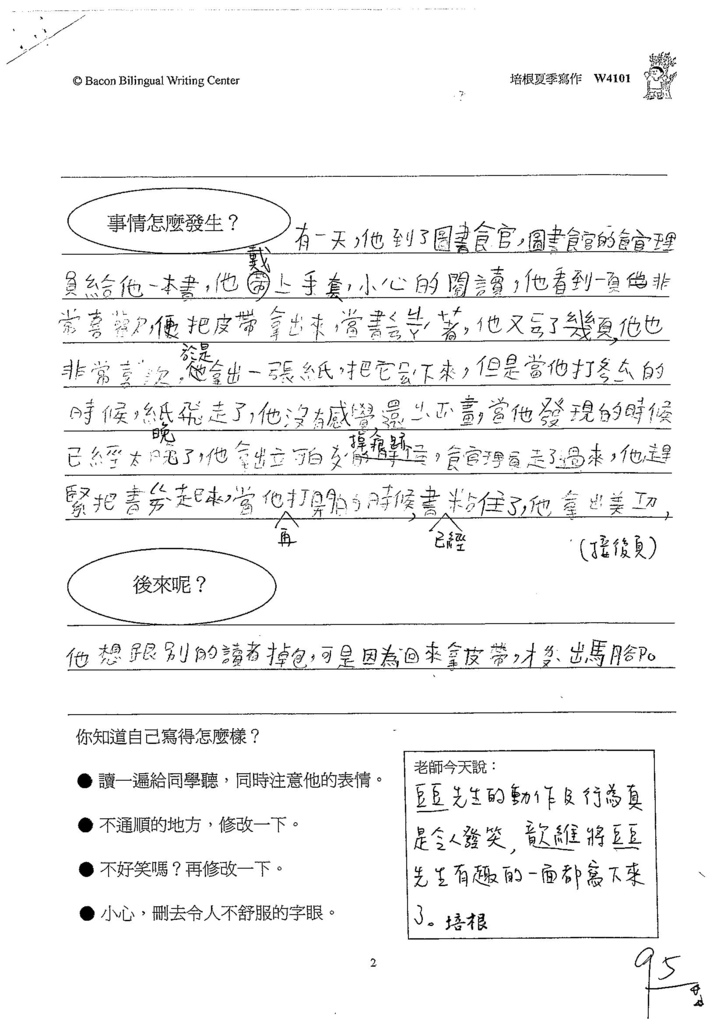 © Bacon Bilingual Writing Center
培根夏季寫作 W4101
事情怎麼發生？
有一天,他到了圖書館,圖書館的館理
員給他一本書,他戴上手套,小心的閱讀,他看到一頁他非
常喜歡,便把皮帶拿出來,當書著,他又丟了幾頁,他也
非常喜歡,於是他拿出一張紙,把它下來,但是當他打
時候,紙飛走了,他沒有感覺還畫,當他發現的時候
已經太晚了,他拿出立可白掉痕跡,館理員走了過來,他趕
緊把書起來,當他再打開的時候,書已經粘住了,他拿出美工,
(接後頁)
後來呢？
他想跟別的讀者掉包,可是因為回來拿皮帶,才出馬腳。
你知道自己寫得怎麼樣？
● 讀一遍給同學聽，同時注意他的表情。
● 不通順的地方，修改一下。
● 不好笑嗎？再修改一下。
● 小心，刪去令人不舒服的字眼。
老師今天說：
豆豆先生的動作及行為真
是令人發笑,歆維將豆豆
先生有趣的一面都寫下來
了。培根
2
95